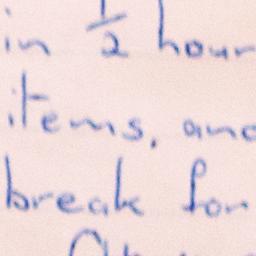 in ½ hour
items, and
break for